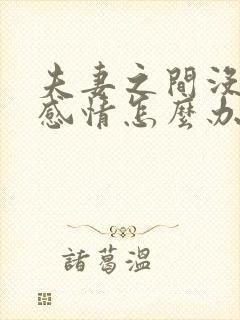 夫妻之間沒
感情怎麼办
諸葛溫